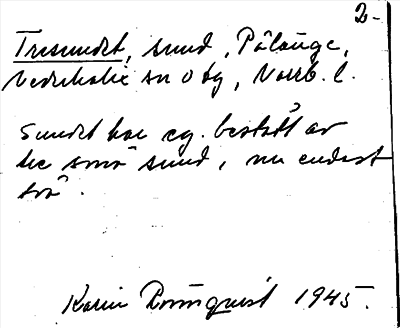 2-
Tresundet, sund, Pålänge,
Nederkalix sn o tg, Norrb. l.
Sundet har eg. bestått av
tre små sund, nu endast
två.
Karin Rönnquist 1945.